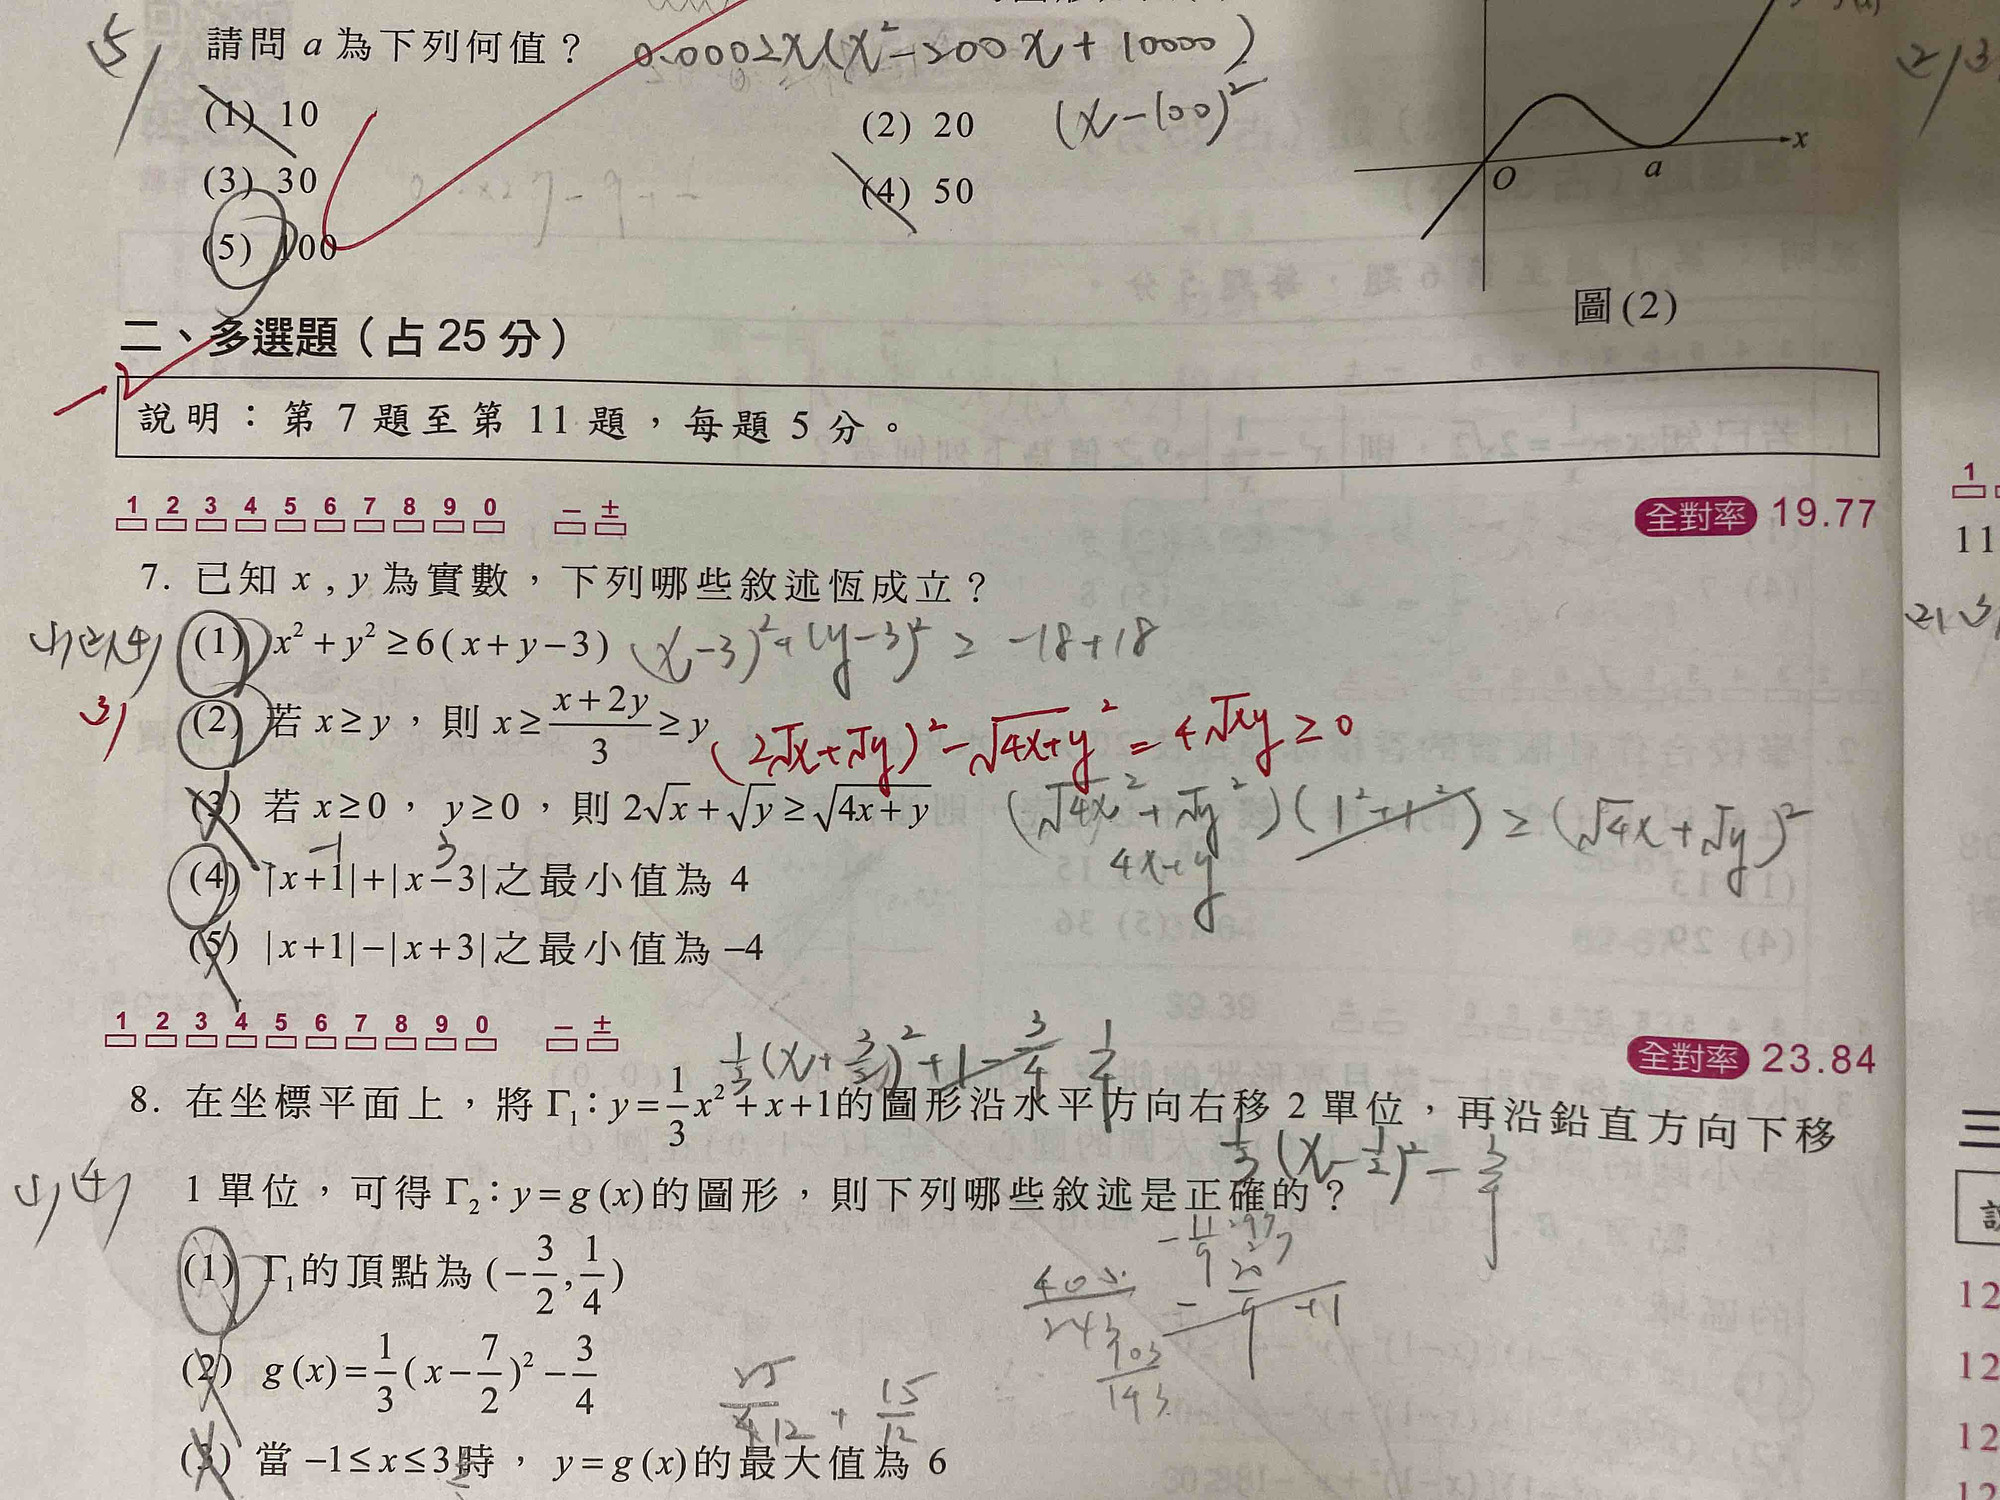 5)
請問 a 為下列何值？ 0.0002x(x²-200x+10000)
(1) 10
(2) 20 (x-100)²
(3) 30
(4) 50
(5) 100
O a x
圖(2)
二、多選題（占 25 分）
說明：第 7 題至第 11 題，每題 5 分。
1 2 3 4 5 6 7 8 9 0 − ±
全對率 19.77
7. 已知 x , y 為實數，下列哪些敘述恆成立？
1)2)4) (1) x²+y²≥6(x+y−3) (x-3)²+(y-3)² ≥ -18+18
3) (2) 若 x≥y，則 x≥(x+2y)/3≥y (2√x+√y)²-√(4x+y)² = 4√xy ≥ 0
(3) 若 x≥0，y≥0，則 2√x+√y≥√(4x+y) (√4x²+√y²)(1²+1²) ≥ (√4x+√y)²
-1 3 4x+y
(4) |x+1|+|x−3|之最小值為 4
(5) |x+1|−|x+3|之最小值為 −4
1 2 3 4 5 6 7 8 9 0 − ±
全對率 23.84
1/3(x+3/2)²+1-3/4 1/4
8. 在坐標平面上，將 Γ₁：y=1/3x²+x+1的圖形沿水平方向右移 2 單位，再沿鉛直方向下移
1/3(x-1/2)²-3/4
1)4) 1 單位，可得 Γ₂：y=g(x)的圖形，則下列哪些敘述是正確的？
(1) Γ₁的頂點為 (−3/2, 1/4)
(2) g(x)=1/3(x−7/2)²−3/4
15/12
(3) 當 −1≤x≤3時，y=g(x)的最大值為 6
1
11
三
12
12
12
12